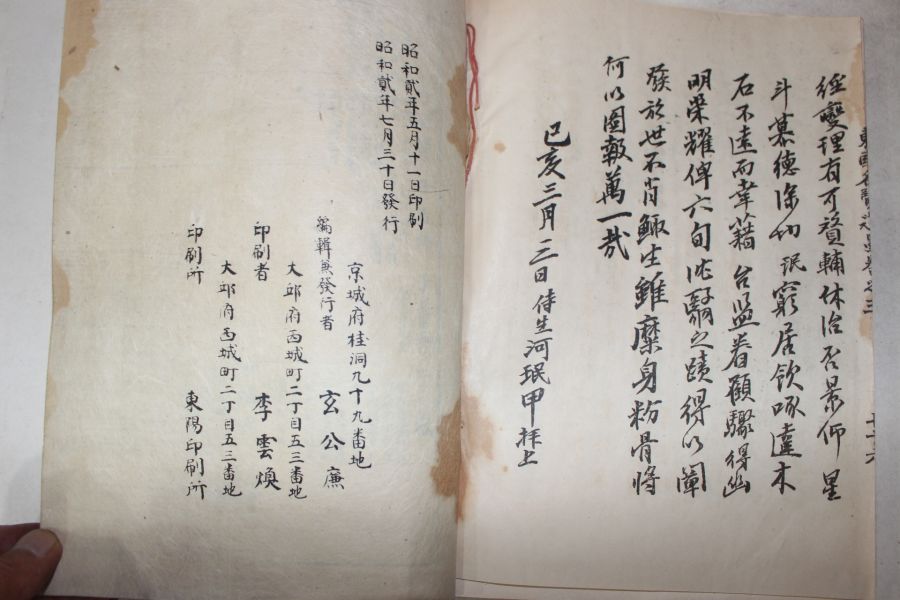 經燮理有可資輔休治否景仰星
斗慕德深切 珉窮居飲啄違木
石不遠而幸藉 台監眷顧驟得幽
明榮耀俾六旬
之蹟得以闡
發於世不肖鯫生雖糜身粉骨將
何以圖報萬一哉
己亥三月三日侍生河珉甲拜上
昭和貳年五月十一日印刷
昭和貳年七月三十日發行
京城府桂洞九十九番地
編輯兼發行者 玄公廉
大邱府西城町二丁目五三番地
印刷者 李雲煥
大邱府西城町二丁目五三番地
印刷所 東陽印刷所